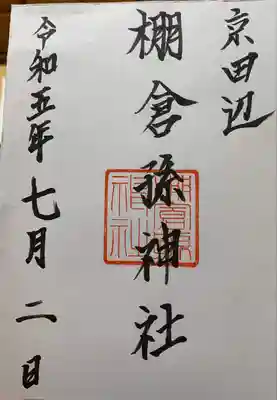 京田辺
棚倉孫神社
令和五年七月二日